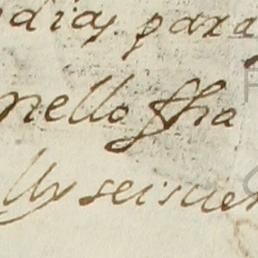 dias para
nello ffra
lly seiscien